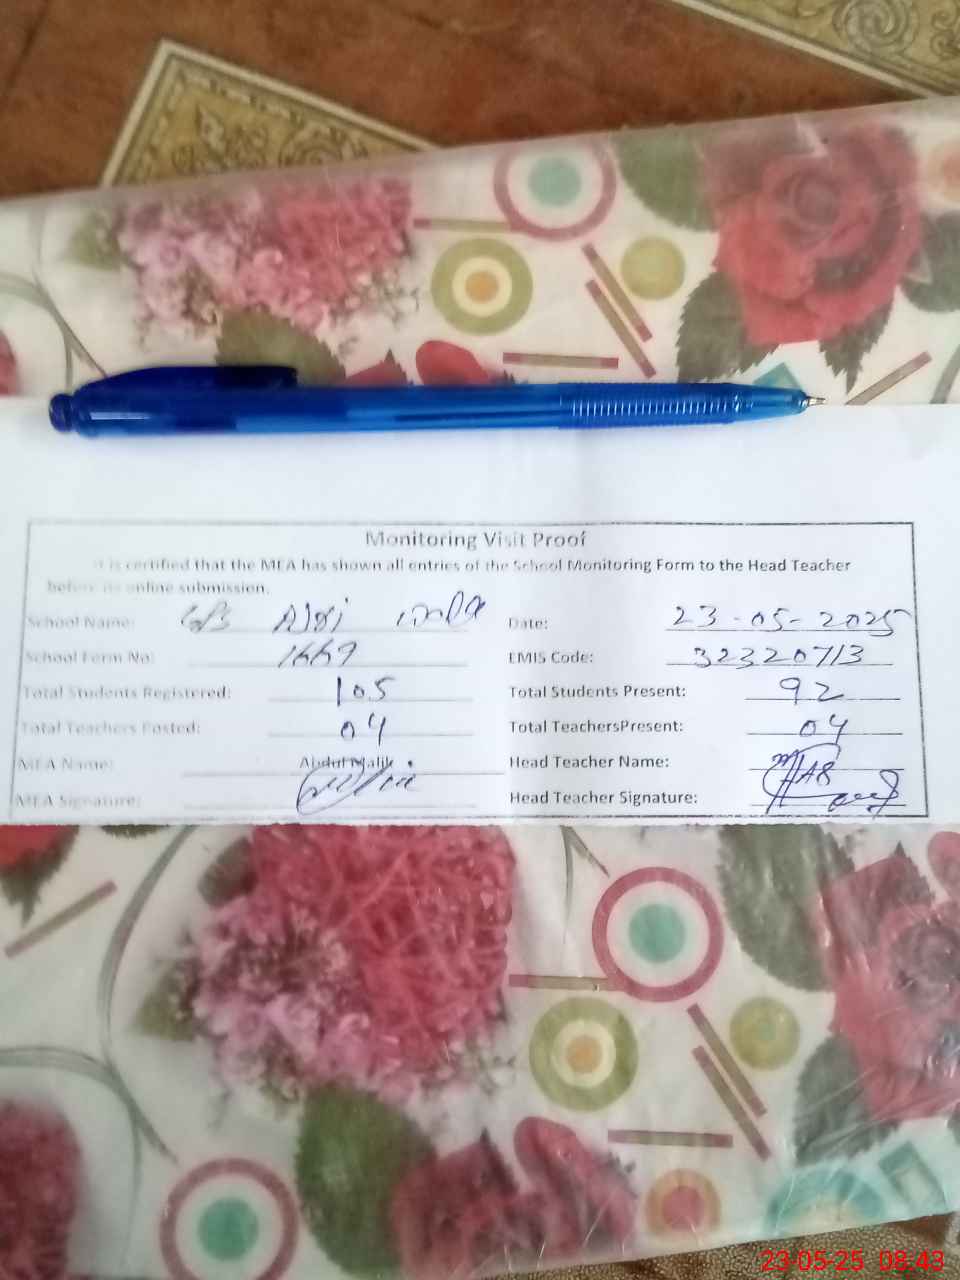 Monitoring Visit Proof
It is certified that the MEA has shown all entries of the School Monitoring Form to the Head Teacher
before its online submission.
School Name: Date: 23-05-2025
School Form No: EMIS Code: 32320713
Total Students Registered: 105 Total Students Present: 92
Total Teachers Posted: 04 Total TeachersPresent: 04
MEA Name: Abdul Malik Head Teacher Name:
MEA Signature: Head Teacher Signature:
23-05-25 08:43